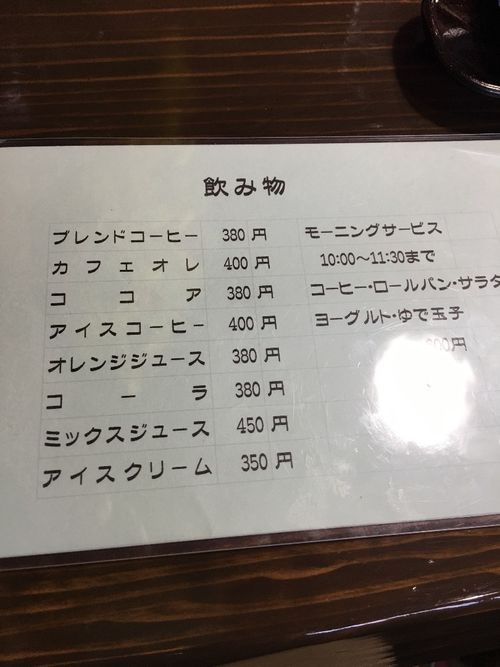 飲み物
ブレンドコーヒー 380 円
カフェオレ 400 円
ココア 380 円
アイスコーヒー 400 円
オレンジジュース 380 円
コーラ 380 円
ミックスジュース 450 円
アイスクリーム 350 円
モーニングサービス
10:00〜11:30まで
コーヒー・ロールパン・サラダ
ヨーグルト・ゆで玉子
円